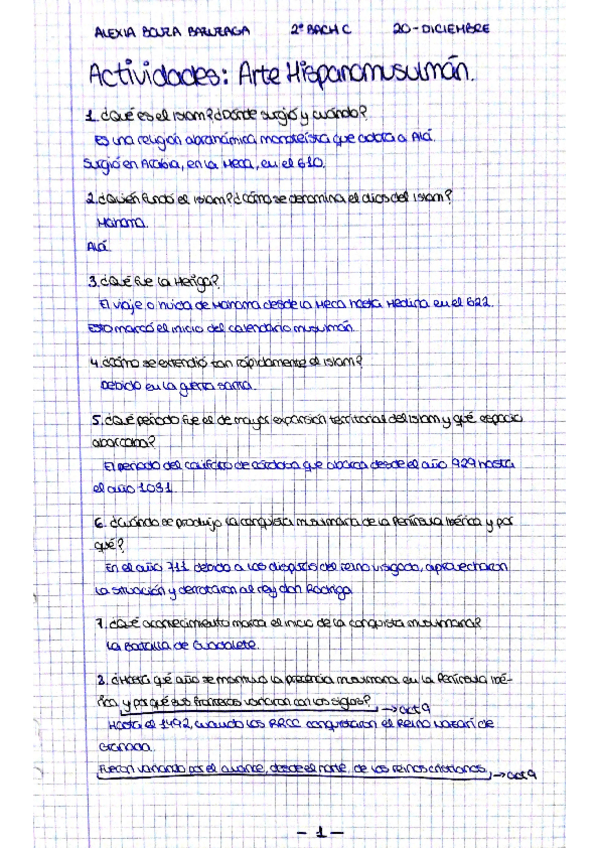 ALEXIA BOUZA BARZAGA 2º BACH C 20-DICIEMBRE
Actividades: Arte Hispanomusulmán.
1. ¿Qué es el Islam? ¿Dónde surgió y cuándo?
Es una religión abrahámica monoteísta que adora a Alá.
Surgió en Arabia, en la Meca, en el 610.
2. ¿Quién fundó el islam? ¿Cómo se denomina el dios del islam?
Mahoma.
Alá
3. ¿Qué fue la Hégira?
El viaje o huida de Mahoma desde la Meca hasta Medina en el 622.
Esto marcó el inicio del calendario musulmán
4. ¿Cómo se extendió tan rápidamente el islam?
Debido en la guerra santa.
5. ¿Qué periodo fue el de mayor expansión territorial del islam y qué espacio
abarcaba?
El periodo del califato de córdoba que abarca desde el año 929 hasta
el año 1031.
6. ¿Cuándo se produjo la conquista musulmana de la Península Ibérica y por
qué?
En el año 711 debido a las disputas del reino visigodo, aprovecharon
la situación y derrotaron al rey don Rodrigo
7. ¿Qué acontecimiento marca el inicio de la conquista musulmana?
La Batalla de Guadalete.
8. ¿Hasta qué año se mantuvo la presencia musulmana en la Península Ibé-
rica y por qué sus fronteras variaron con los siglos? → act 9
Hasta el 1492, cuando los RRCC conquistaron el Reino nazarí de
Granada.
Fueron variando por el avance, desde el norte, de los reinos cristianos, → act 9
- 1 -